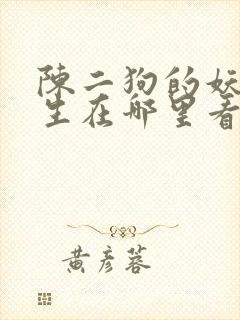 陳二狗的妖
生在哪里看
黄彦蓉